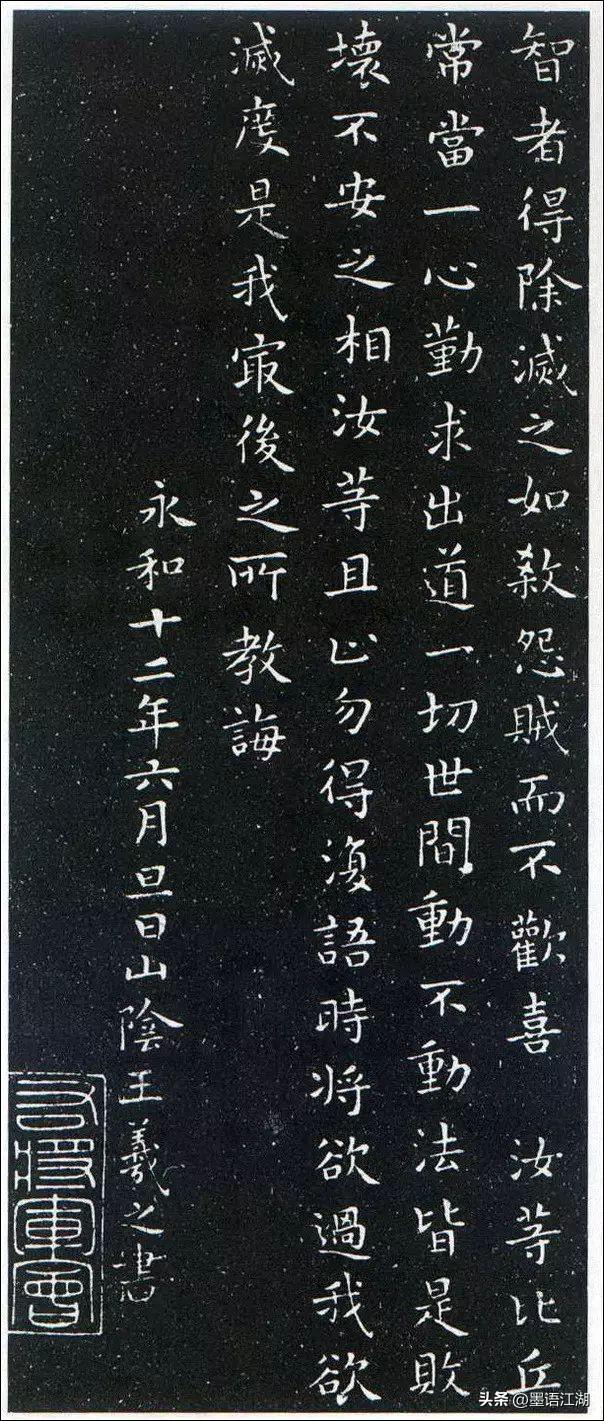 智者得除滅之如殺怨賊而不歡喜 汝等比丘
常當一心勤求出道一切世間動不動法皆是敗
壞不安之相汝等且止勿得復語時將欲過我欲
滅度是我最後之所教誨
永和十二年六月旦日山陰王羲之書
右將軍會
头条 @墨语江湖